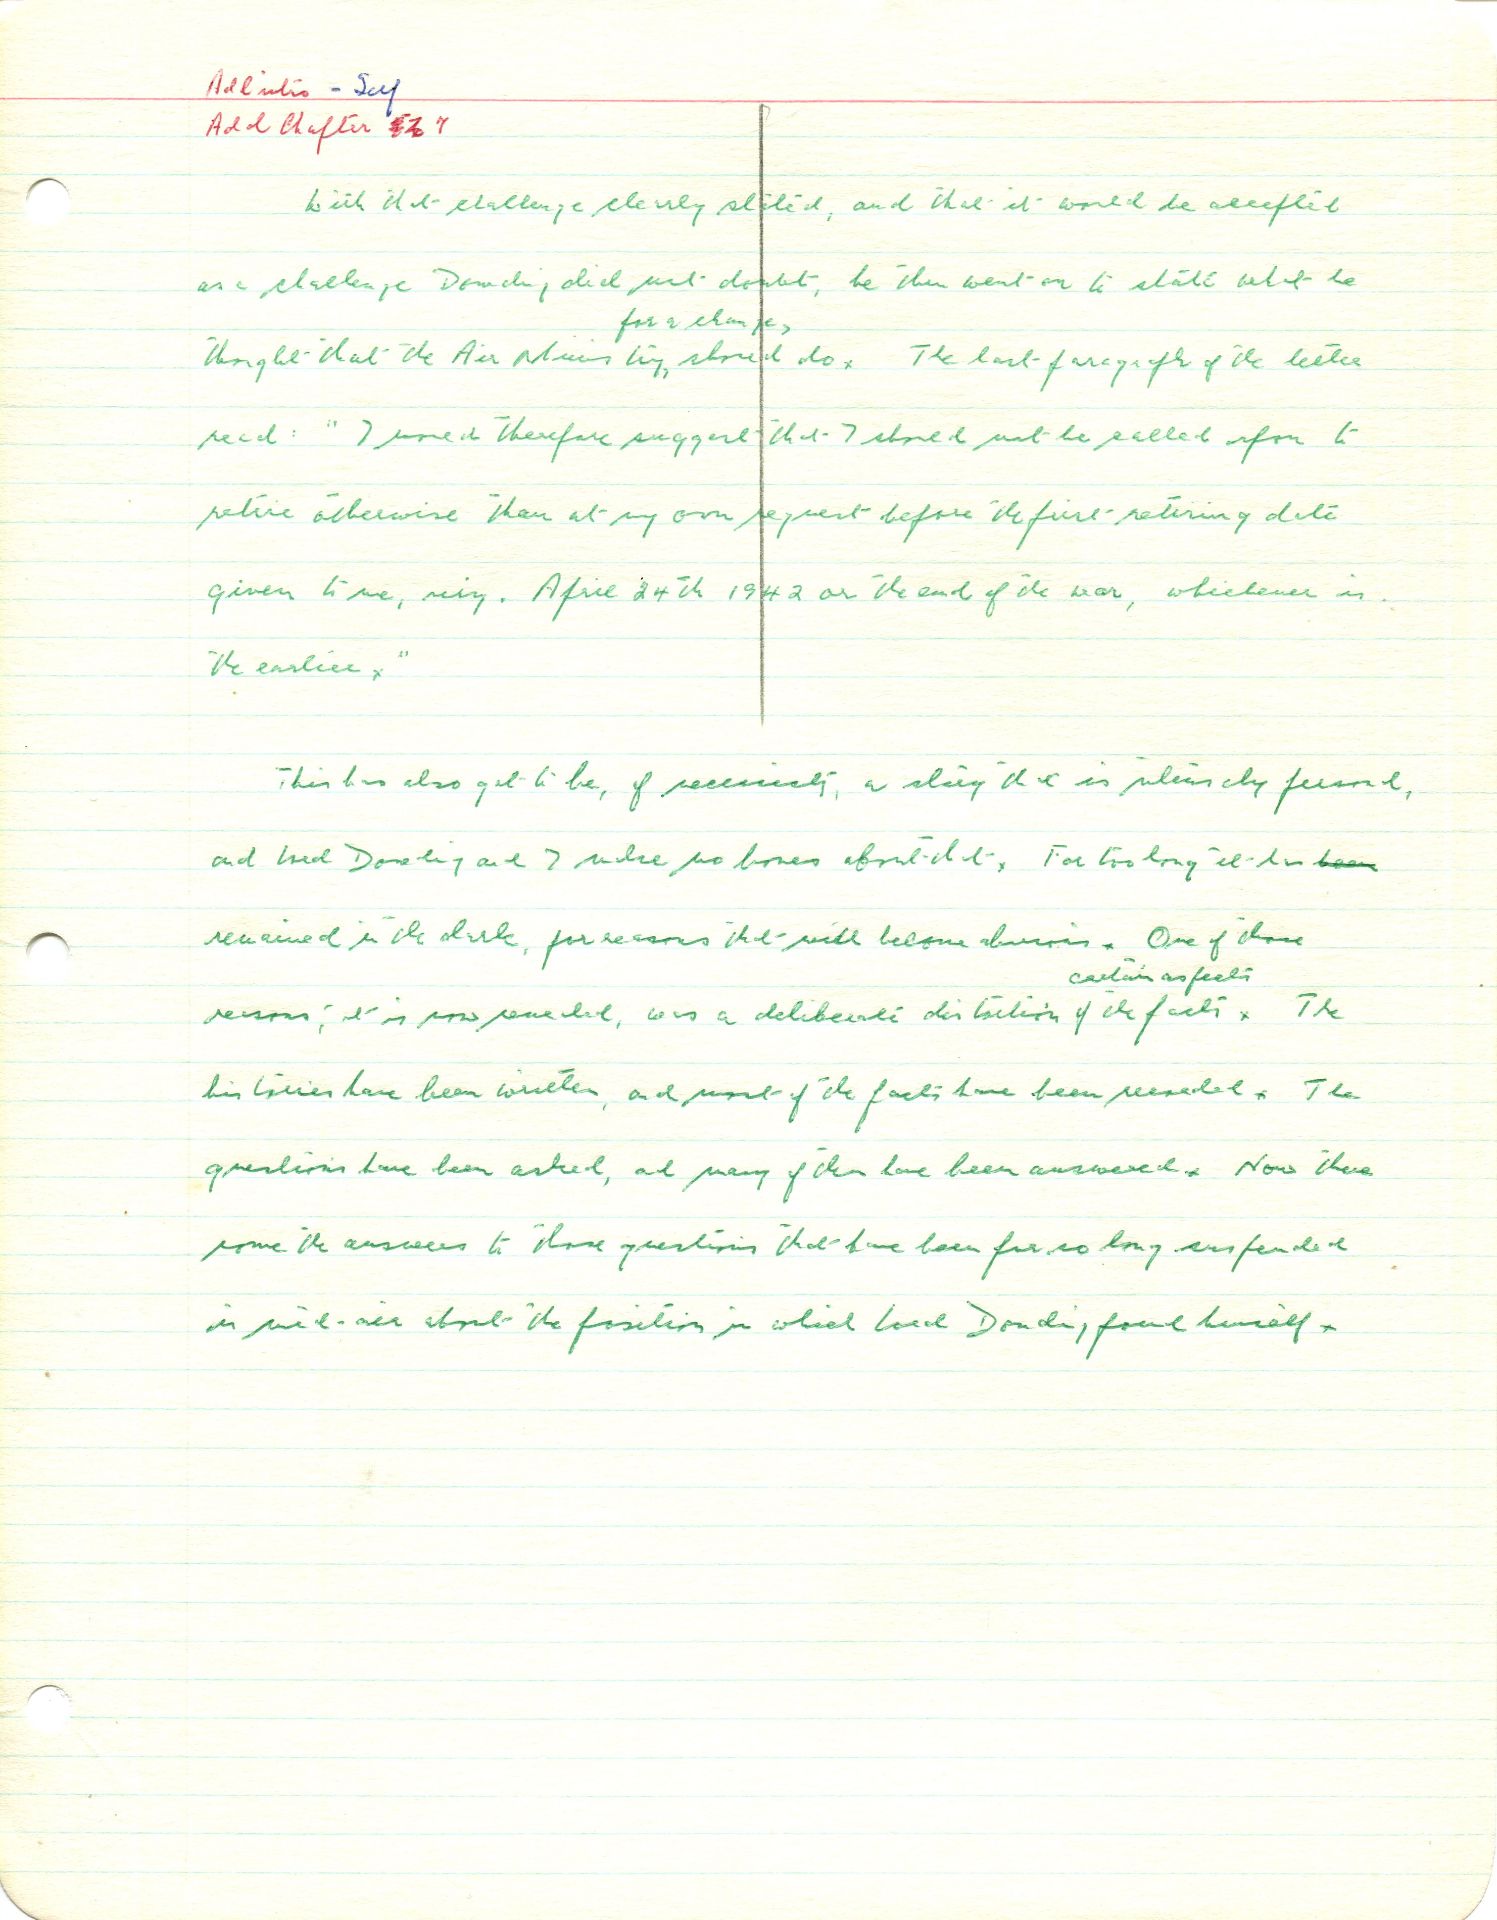 Add intro - Self
Add Chapter 7
With that challenge clearly stated, and that it would be accepted
as a challenge Dowding did not doubt, he then went on to state what he
for a change,
thought that the Air Ministry, should do. The last paragraph of the letter
read: "I would therefore suggest that I should not be called upon to
retire otherwise than at my own request before the first retiring date
given to me, viz. April 24th 1942 or the end of the war, whichever is
the earlier."
This has also got to be, of necessity, a story that is intensely personal,
and Lord Dowding and I make no bones about that. For too long it has been
remained in the dark, for reasons that will become obvious. One of those
certain aspects
reasons, it is now revealed, was a deliberate distortion of the facts. The
histories have been written, and most of the facts have been recorded. The
questions have been asked, and many of them have been answered. Now there
come the answers to those questions that have been for so long suspended
in mid-air about the position in which Lord Dowding found himself.